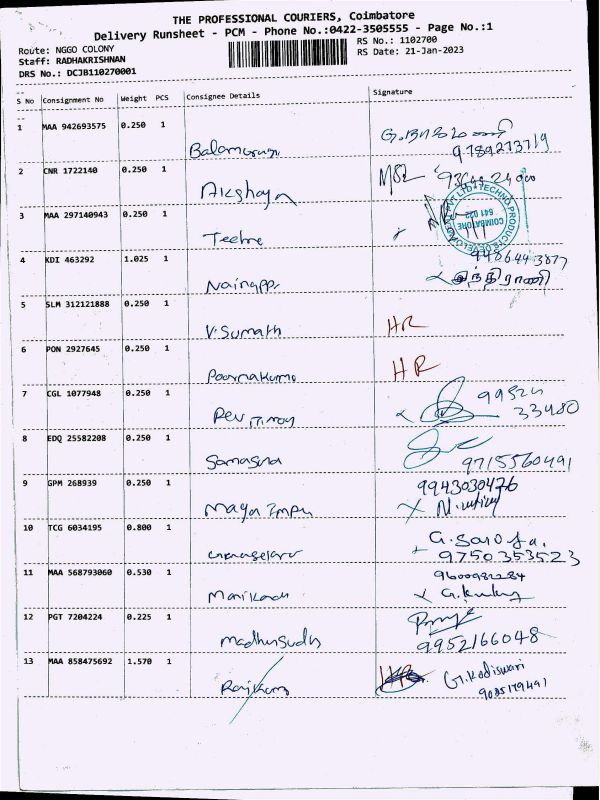 THE PROFESSIONAL COURIERS, Coimbatore
Delivery Runsheet - PCM - Phone No.:0422-3505555 - Page No.:1
Route: NGGO COLONY
RS No.: 1102700
Staff: RADHAKRISHNAN
RS Date: 21-Jan-2023
DRS No.: DCJB110270001
S No Consignment No Weight PCS Consignee Details Signature
1 MAA 942693575 0.250 1
Balamurugn 9789273719
2 CNR 1722140 0.250 1
Akshaya
3 MAA 297140943 0.250 1
Techno
TECHNO PRODUCTS DEVELOPMENT PVT LTD
COIMBATORE 641 022
4 KDI 463292 1.025 1 9486443877
Nainappa இந்திராணி
5 SLM 312121888 0.250 1
V.Sumath HR
6 PON 2927645 0.250 1
Poornakumo HR
7 CGL 1077948 0.250 1 99524
33480
8 EDQ 25582208 0.250 1
9715560491
9 GPM 268939 0.250 1 9943030476
Maya Impu
10 TCG 6034195 0.800 1 G.Saroja.
9750353523
11 MAA 568793060 0.530 1 9600982284
Manikand
12 PGT 7204224 0.225 1
Madhusudh 9952166048
13 MAA 858475692 1.570 1 G.Kodiswari
Rajkum